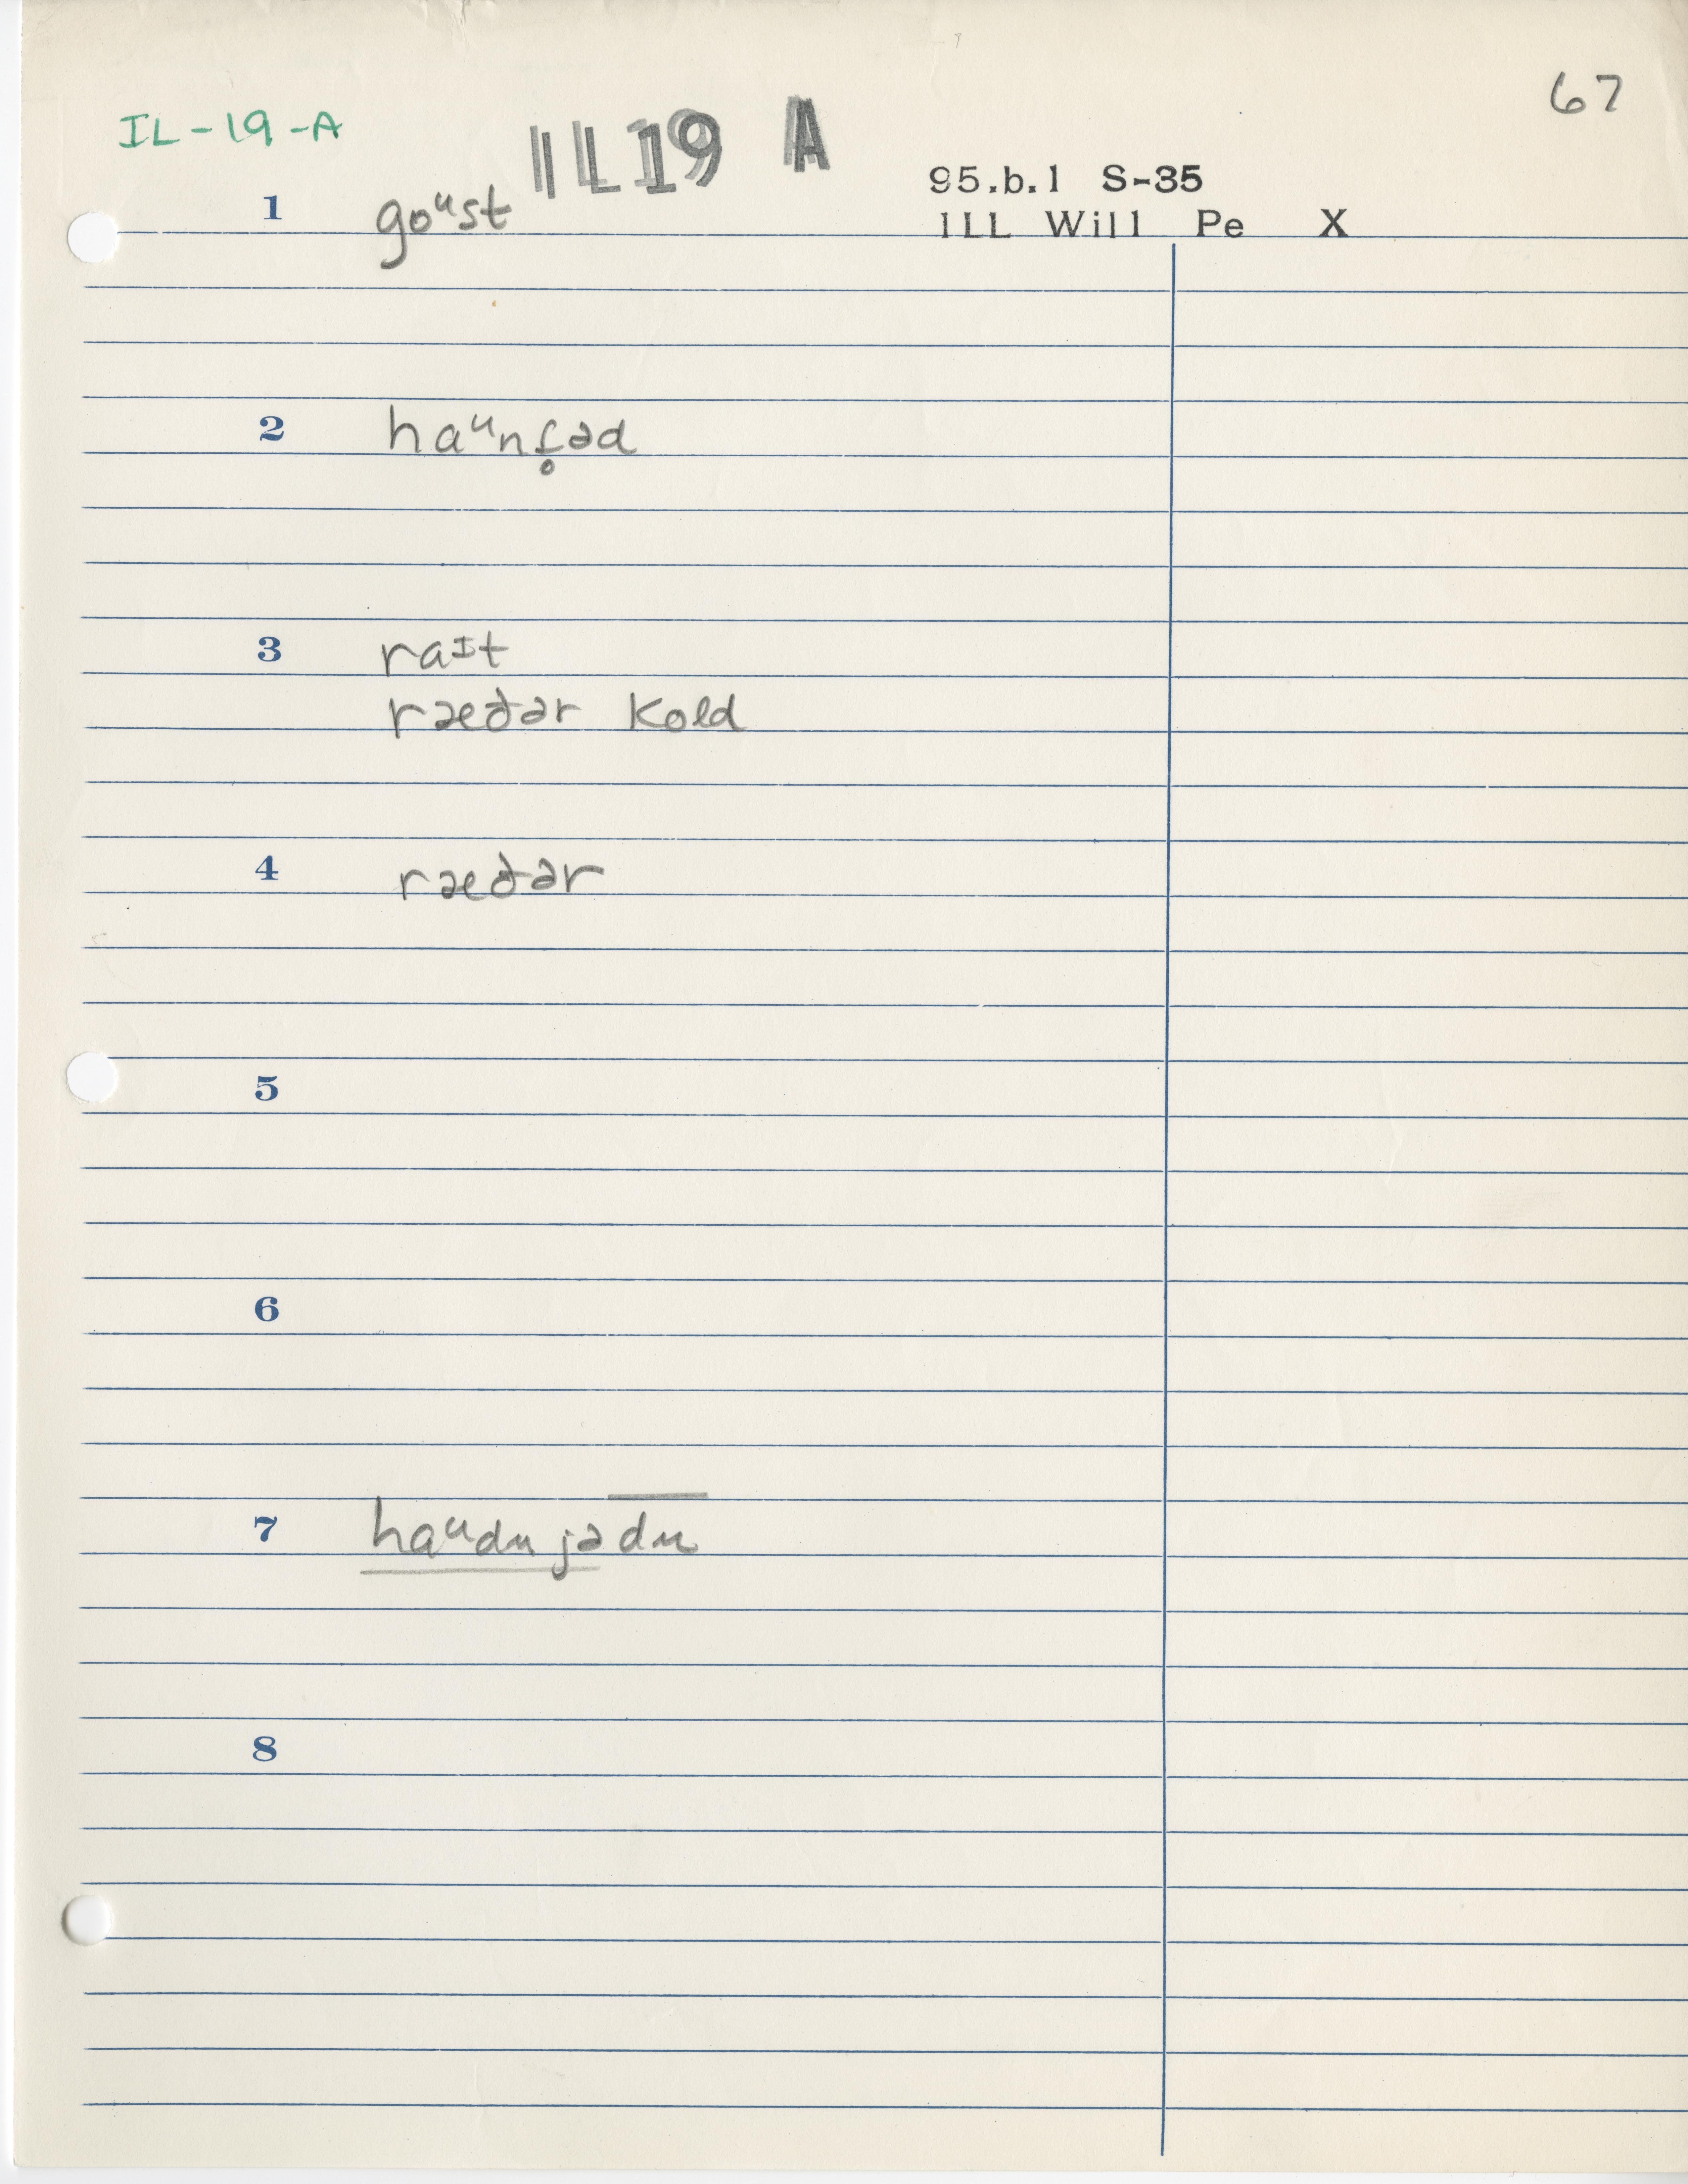 67
IL-19-A
IL19 A
95.b.1 S-35
ILL Will Pe X
1 goᵘst
2 haᵘnt̬̥əd
3 raᶦt
ræðər kold
4 ræðər
5
6
7 haᵘdu jədu
8